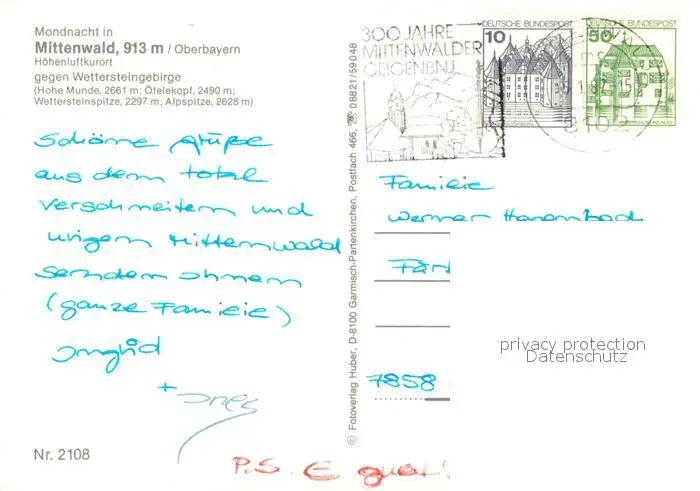 Mondnacht in
Mittenwald, 913 m / Oberbayern
Höhenluftkurort
gegen Wettersteingebirge
(Hohe Munde, 2661 m; Öfelekopf, 2490 m;
Wettersteinspitze, 2297 m; Alpspitze, 2628 m)
Schöne Grüße
aus dem total
verschneitem und
urigem Mittenwald
senden Ihnen
(ganze Familie)
Ingrid
+ Ines
Nr. 2108
P.S. E
© Fotoverlag Huber, D-8100 Garmisch-Partenkirchen, Postfach 466, ☎ 08821/59048
300 JAHRE
MITTENWALDER
GEIGENBAU
DEUTSCHE BUNDESPOST
10
DEUTSCHE BUNDESPOST
50
8102
Familie
Werner
7858
privacy protection
Datenschutz